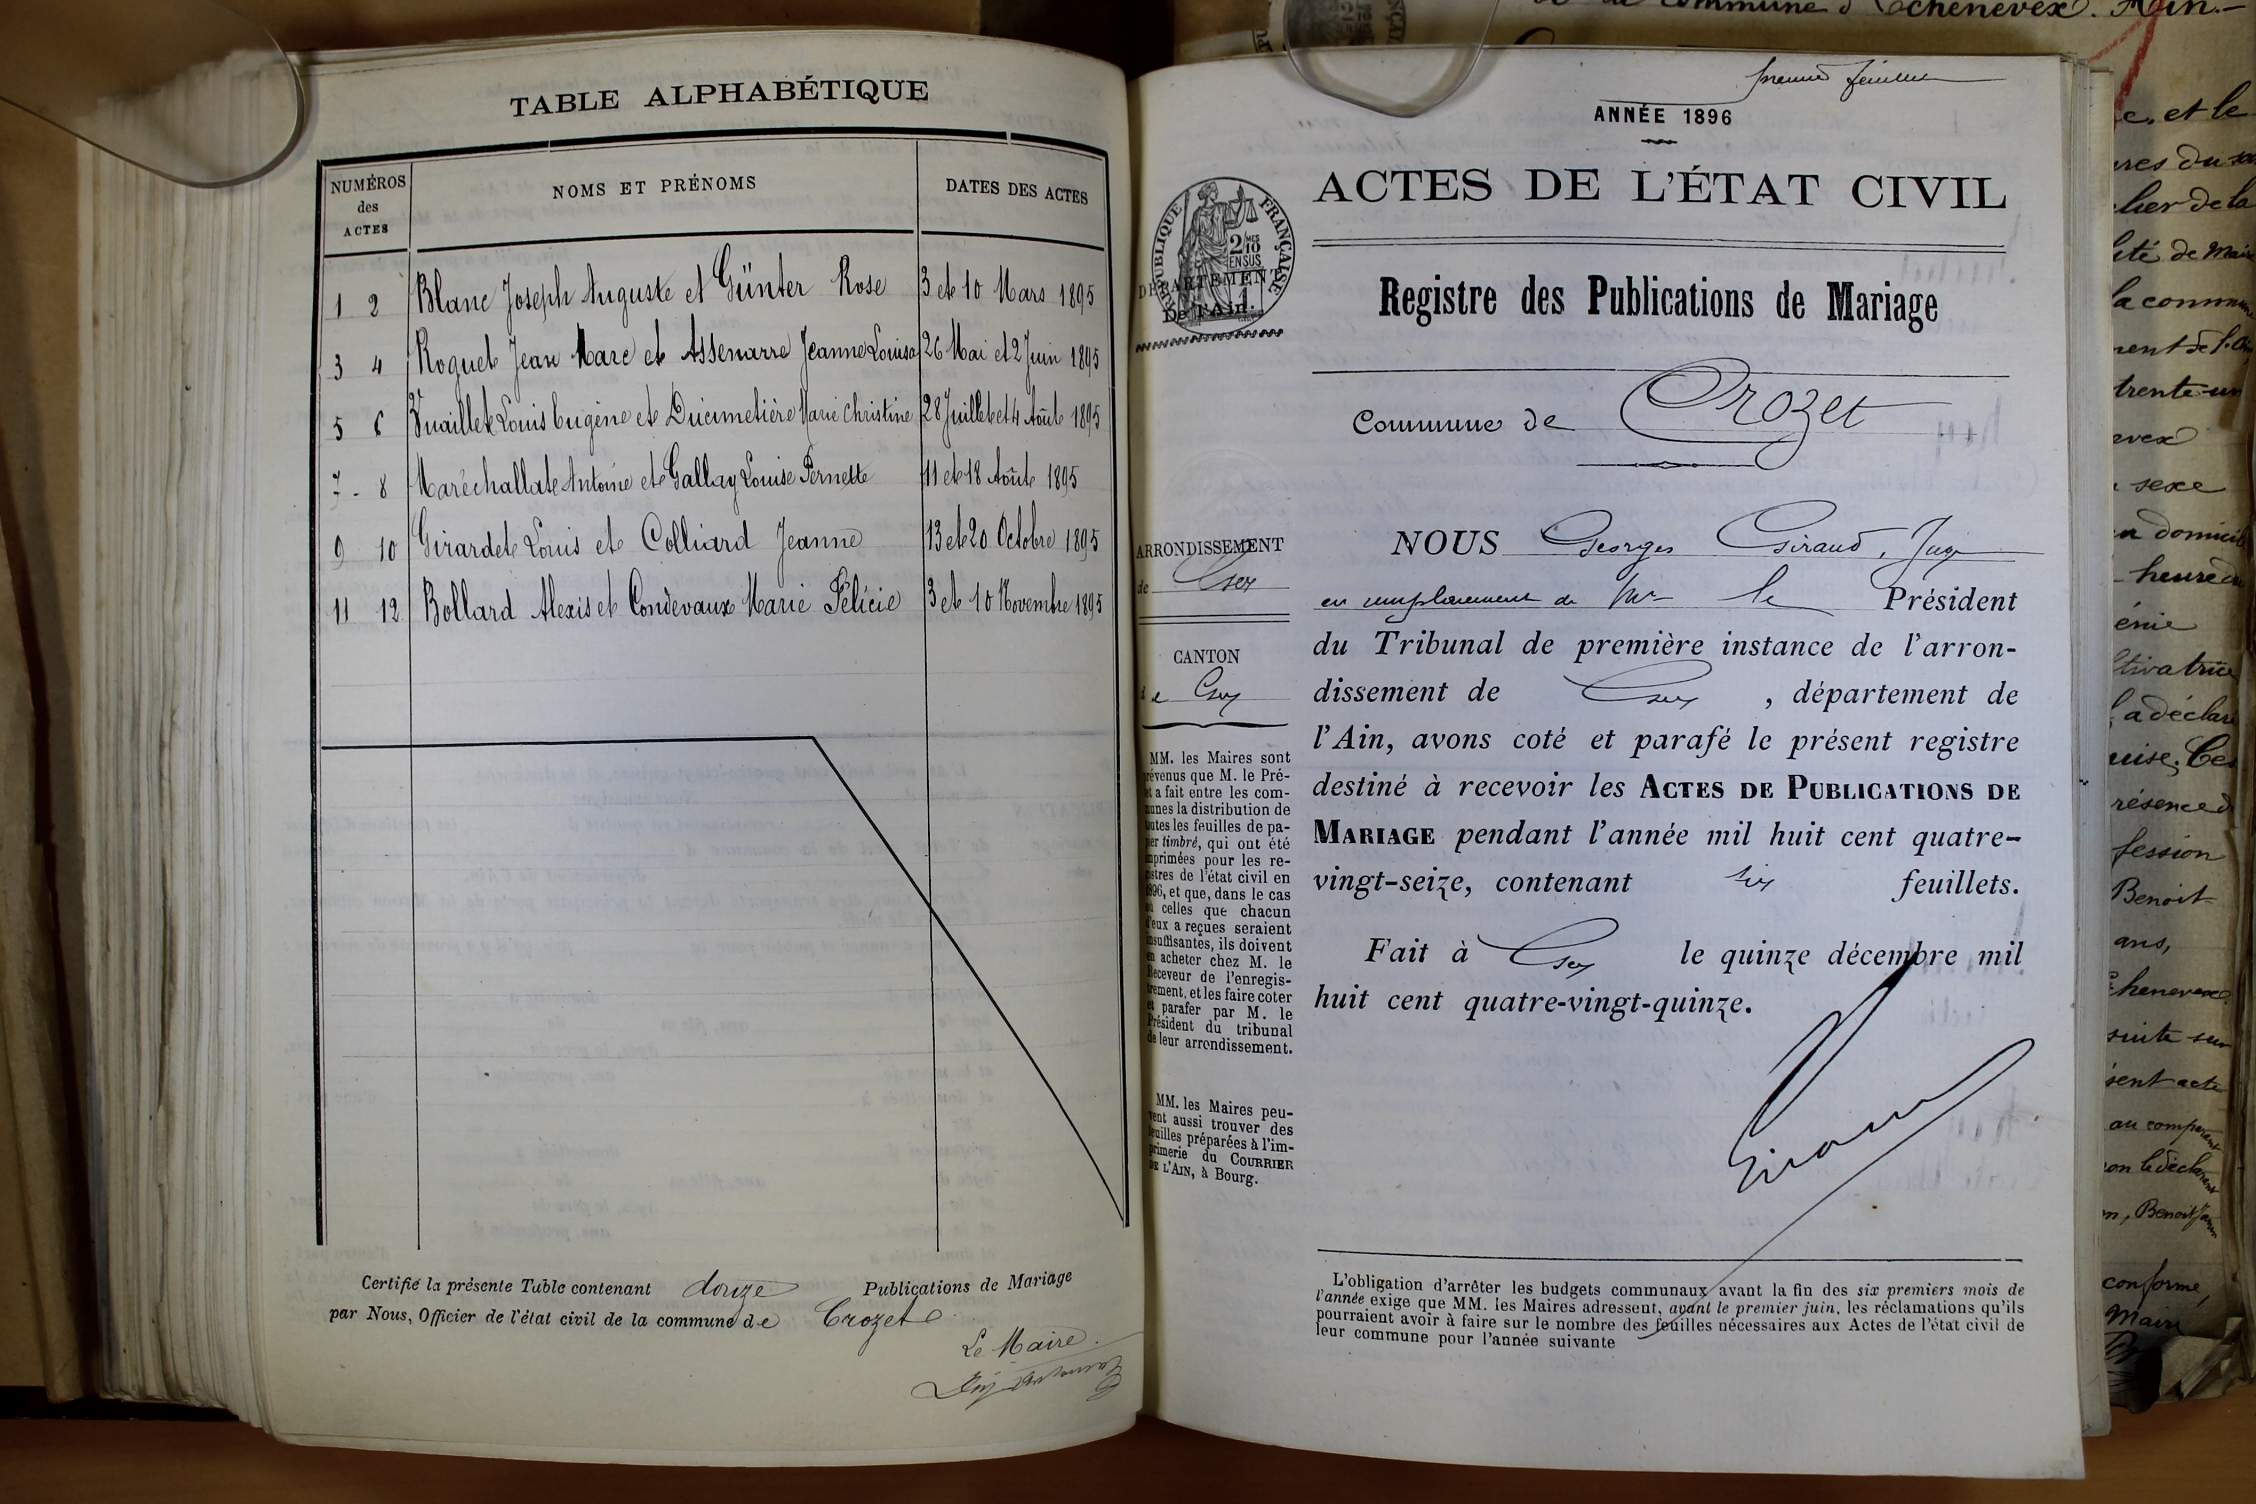 TABLE ALPHABÉTIQUE
NUMÉROS
des
ACTES
NOMS ET PRÉNOMS
DATES DES ACTES
1 2 Blanc Joseph Auguste et Günter Rose 3 et 10 Mars 1895
3 4 Roquet Jean Marc et Assenarre Jeanne Louisa 26 Mai et 2 Juin 1895
5 6 Vuaillet Louis Eugène et Ducimetière Marie Christine 28 Juillet et 4 Août 1895
7 - 8 Maréchallat Antoine et Gallay Louise Pernette 11 et 18 Août 1895
9 10 Girardet Louis et Colliard Jeanne 13 et 20 Octobre 1895
11 12 Bollard Alexis et Condevaux Marie Félicie 3 et 10 Novembre 1895
Certifié la présente Table contenant douze Publications de Mariage
par Nous, Officier de l'état civil de la commune de Crozet
Le Maire
premier feuillet
ANNÉE 1896
ACTES DE L'ÉTAT CIVIL
RÉPUBLIQUE FRANÇAISE
2 MES
10
EN SUS
DÉPARTEMENT
De l'Ain.
Registre des Publications de Mariage
Commune de Crozet
ARRONDISSEMENT
de Gex
CANTON
de Gex
MM. les Maires sont
prévenus que M. le Pré-
et a fait entre les com-
munes la distribution de
toutes les feuilles de pa-
pier timbré, qui ont été
imprimées pour les re-
gistres de l'état civil en
1896, et que, dans le cas
où celles que chacun
d'eux a reçues seraient
insuffisantes, ils doivent
en acheter chez M. le
Receveur de l'enregis-
trement, et les faire coter
et parafer par M. le
Président du tribunal
de leur arrondissement.
MM. les Maires peu-
vent aussi trouver des
feuilles préparées à l'im-
primerie du COURRIER
DE L'AIN, à Bourg.
NOUS Georges Giraud, Juge
en remplacement de Mr le Président
du Tribunal de première instance de l'arron-
dissement de Gex, département de
l'Ain, avons coté et parafé le présent registre
destiné à recevoir les ACTES DE PUBLICATIONS DE
MARIAGE pendant l'année mil huit cent quatre-
vingt-seize, contenant six feuillets.
Fait à Gex le quinze décembre mil
huit cent quatre-vingt-quinze.
Giraud
L'obligation d'arrêter les budgets communaux avant la fin des six premiers mois de
l'année exige que MM. les Maires adressent, avant le premier juin, les réclamations qu'ils
pourraient avoir à faire sur le nombre des feuilles nécessaires aux Actes de l'état civil de
leur commune pour l'année suivante
commune d'Echenevex. Ain.-
et le
du
de la
de
la
trente-un
sexe
domicile
heure du
a déclaré
Benoit
ans,
sent acte
au comparant
le déclarant
conforme,
Maire